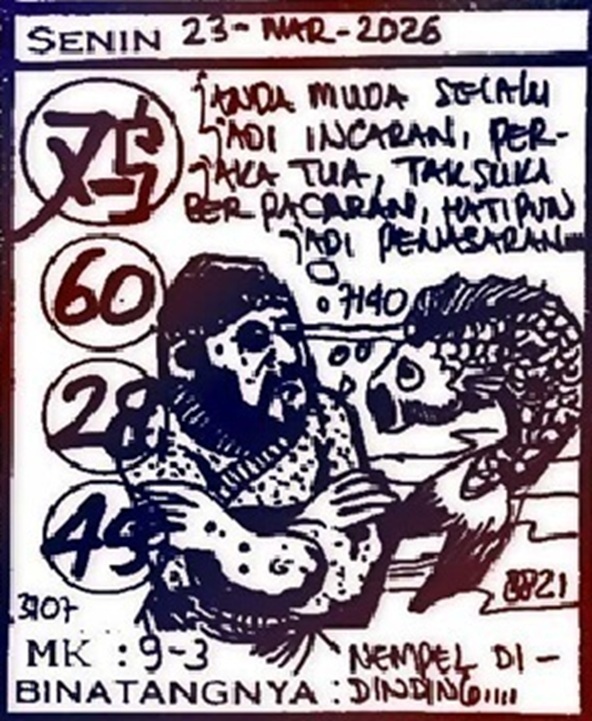 SENIN 23-MAR-2026
JANDA MUDA SELALU
JADI INCARAN, PER-
JAKA TUA, TAK SUKA
BERPACARAN, HATIPUN
JADI PENASARAN....
60
7140
28
45
8821
3107
MK : 9-3
NEMPEL DI-
BINATANGNYA : DINDING....